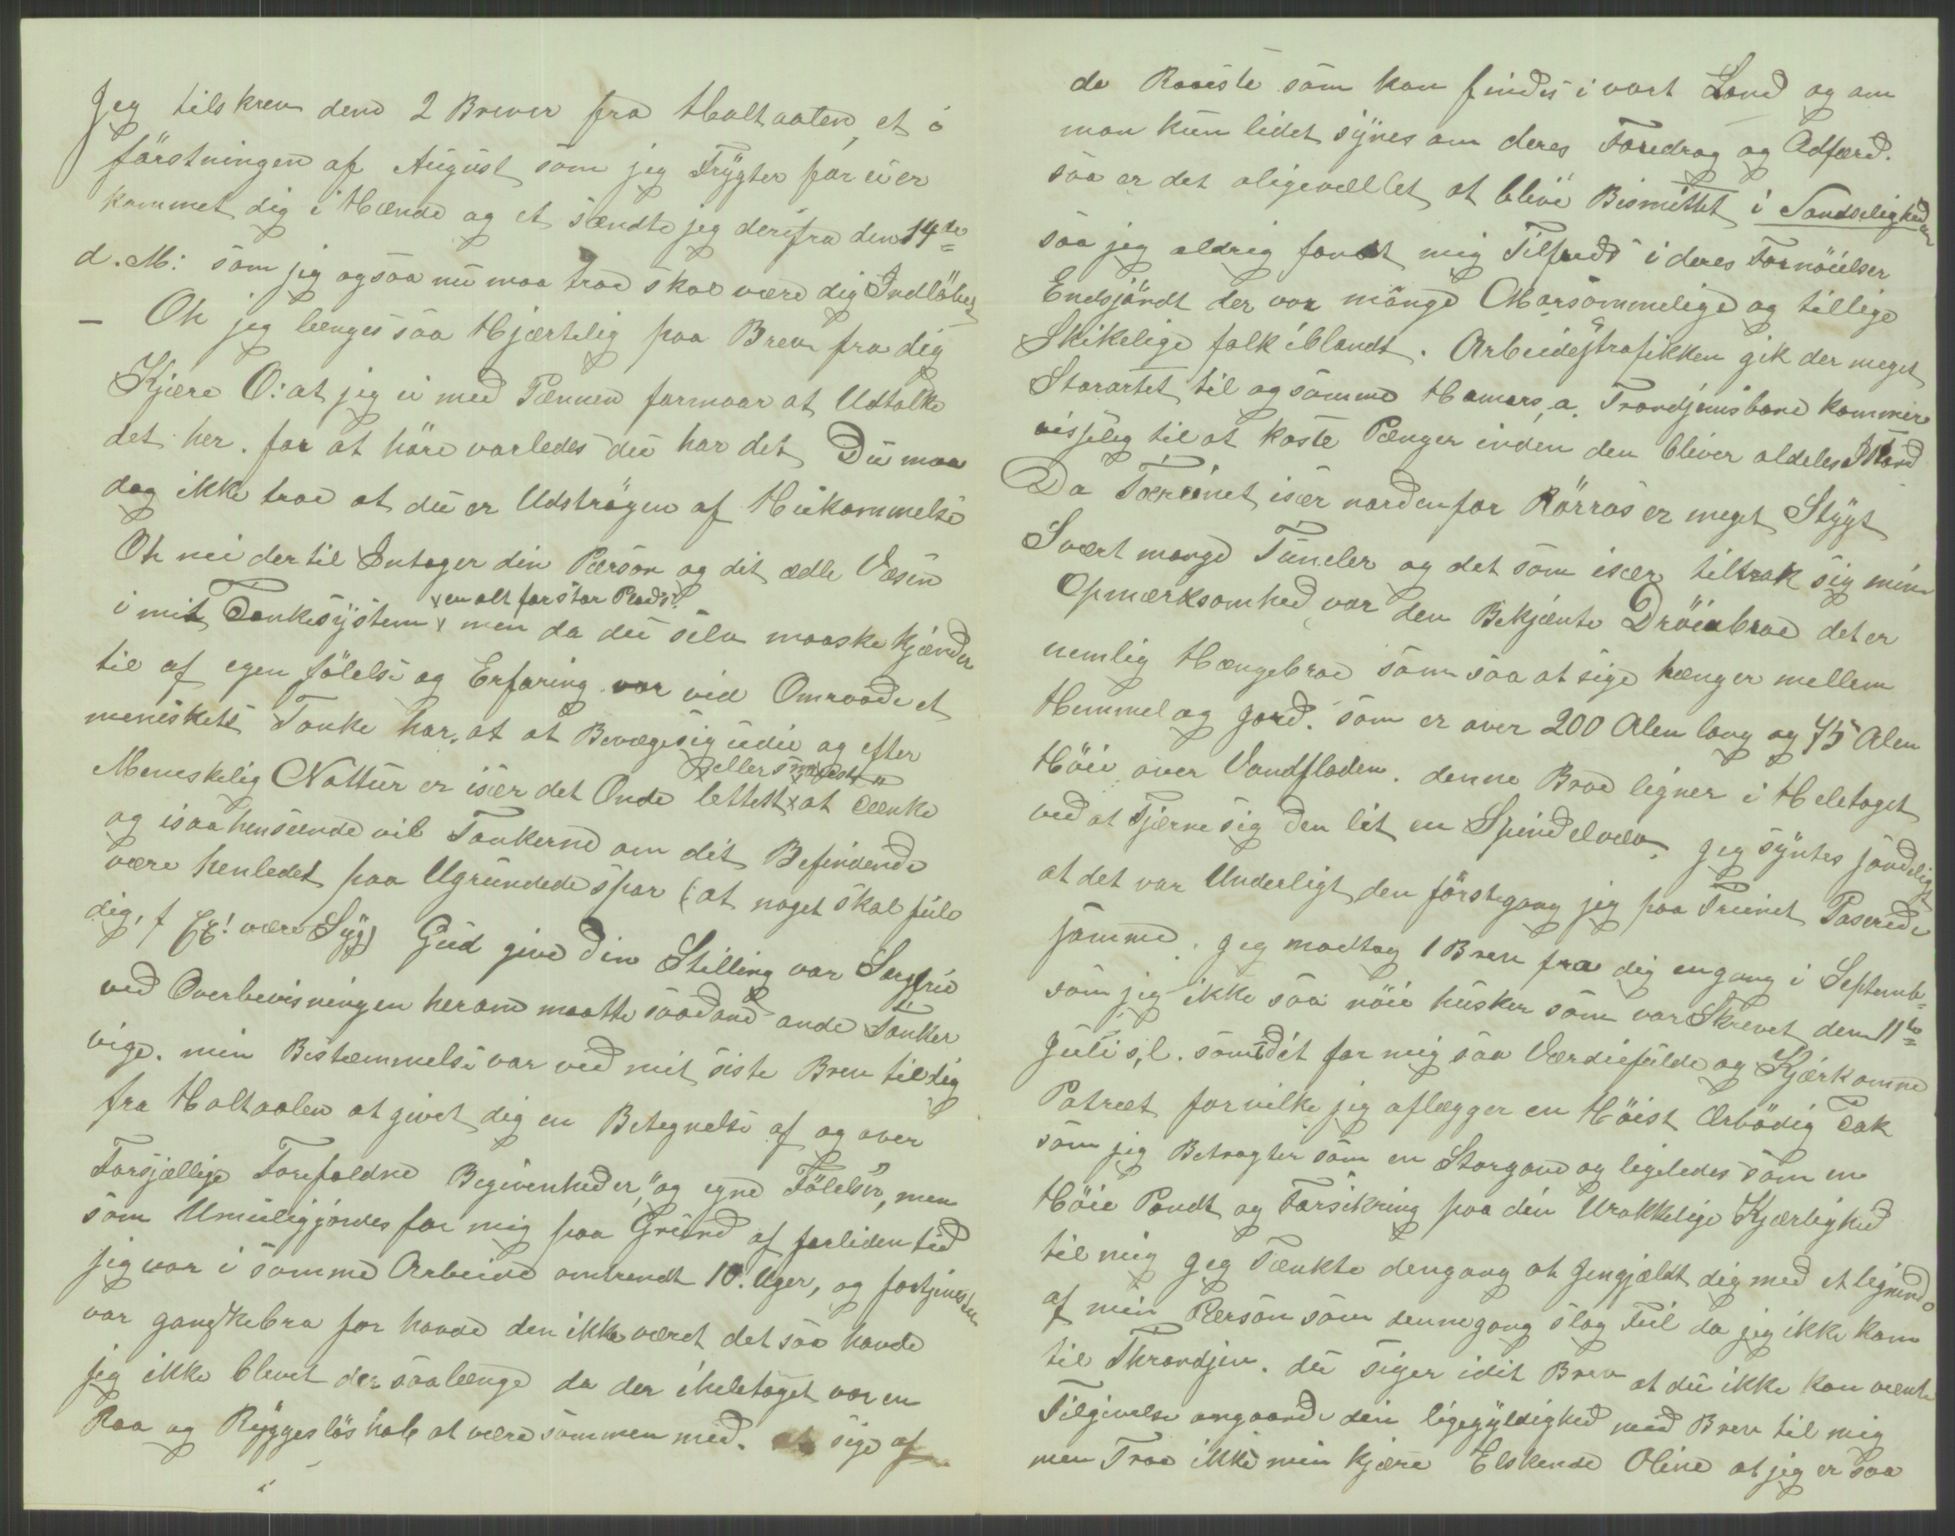 Jeg tilskrev dend 2 Brever fra Holtaalen, et i
förstningen af August som jeg Frygter for ei er
kommet dig i Hænde og et sændte jeg derifra den 14de
d. M: som jeg ogsaa nu maa troe skal være dig Indløbet
– Oh jeg længes saa Hjærtelig paa Brev fra dig
Kjære O: at jeg ei med Pænnen formaar at Udtolke
det her. for at høre vorledes du har det Du maa
dog ikke troe at du er Udstrøgen af Hukommelse
Oh nei dertil Intager din Pærson og dit ædle Væsen
x en alt for stor Plads!
i mit Tankesystem x men da du selv maaske kjænder
til af egen følelse og Erfaring vor vid Omraade et
meniskets Tanke har, at at Bevæge sig udi og efter
x eller snarest
Meneskelig Nattur er især det Onde lettest x at tænke
og isaa henseende vil Tankerne om dit Befindende
være henledet paa Ugrundede spor (at noget skal feile
dig, f Ex! være Syg) Gud give din Stilling var Sorgfrie
ved Overbevisningen herom maatte saadane onde Tanker
vige. min Bestæmmelse var ved mit siste Brev til dig
fra Holtaalen at givet dig en Betegnelse af og over
Forsjællige Forefaldne Begivenheder, "og egne Følelser", men
som Umuliggjordes for mig paa Grund af forliden tid
jeg var i somme Arbeide omtrendt 10. Uger, og fortjenesten
var ganskebra for havde den ikke været det saa havde
jeg ikke blevet der saalænge da der iheletaget var en
Raa og Ryggesløs hob at være sammen med. at sige af
de Raaeste som kan findes i vort Land og om
man kun lidet synes om deres Foredrag og Adfærd.
saa er det aligevellet at blive Besmittet i Sandselighed
saa jeg aldrig fandt mig Tilfreds i deres Fornøielser
Endsjøndt der var mange Morsommelige og tillige
Skikelige folk iblandt. Arbeidstrafikken gik der meget
Storartet til og somme Hamars a. Trondjemsbane kommer
visselig til at koste Pænger inden den bliver aldeles Istand
Da Tærænet især nordenfor Rørros er meget Stygt
Svært mange Tuneler og det som især tiltrak sig min
Opmærksomhed var den Bekjænte Drøiabroe det er
nemlig Hængebroe som saa at sige hænger mellem
Hemmel og Jord. som er over 200 Alen lang og 75 Alen
Høie over Vandfladen. denne Broe ligner i Heletaget
ved at Fjærne sig den lit en Spindelvæv. Jeg syntes
at det var Underligt den førstegang jeg paa Treinet Paserede
somme. Jeg modtog 1 Brev fra dig engang i Septemb-
som jeg ikke saa nøie husker som var Skrevet den 11te
Juli s, l. som dit for mig saa Værdiefulde og Kjærkomne
Potræt for vilke jeg aflægger en Høist Ærbødig Tak
som jeg Betragter som en Storgave og ligeledes som en
Høie Pandt og Forsikring paa din Urokkelige Kjærlighed
til mig Jeg Tænkte dengang at Jengjældt dig med et lignende
af min Pærson som dennegang slog Feil da jeg ikke kom
til Throndjem. du siger idit Brev at du ikke kan vente
Tilgivelse angaaende din ligegyldighed med Brev til mig
men Troe ikke min kjære Elskende Oline at jeg er saa